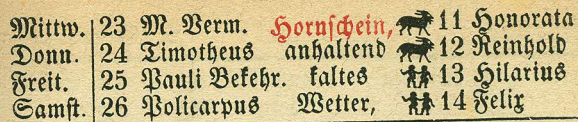 Mittw. 23 M. Verm. Hornschein, 11 Honorata
Donn. 24 Timotheus anhaltend 12 Reinhold
Freit. 25 Pauli Bekehr. kaltes 13 Hilarius
Samst. 26 Policarpus Wetter, 14 Felix